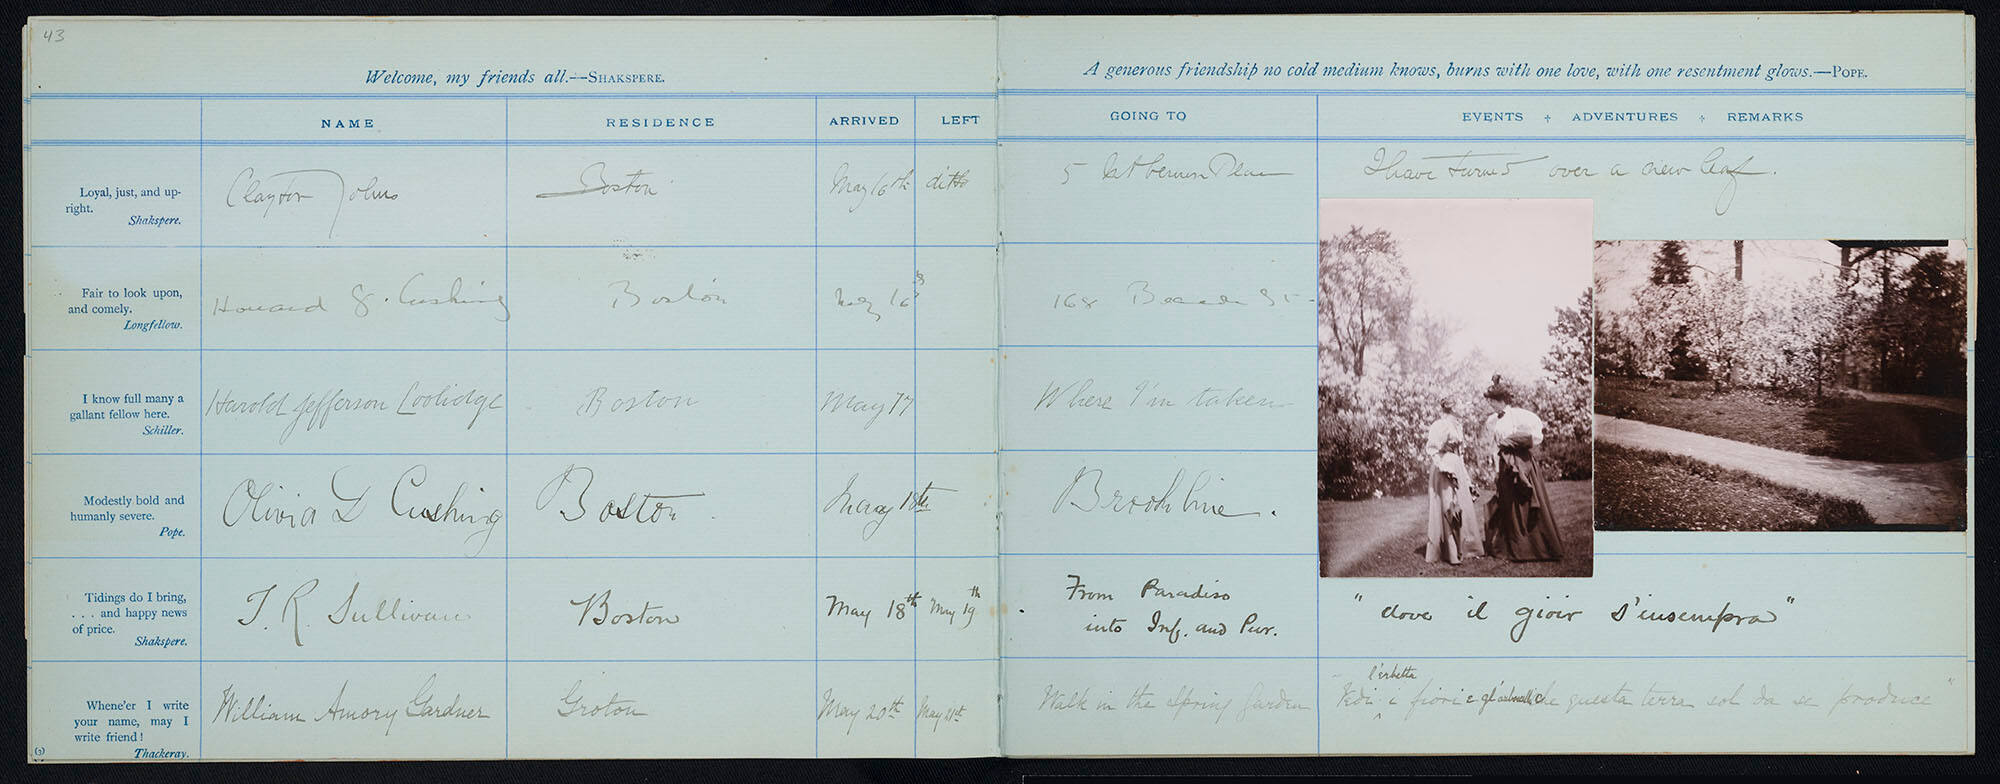 43
Welcome, my friends all.—SHAKSPERE.
A generous friendship no cold medium knows, burns with one love, with one resentment glows.—POPE.
NAME RESIDENCE ARRIVED LEFT GOING TO EVENTS ✢ ADVENTURES ✢ REMARKS
Loyal, just, and up-
right.
Shakspere.
Clayton Johns Boston May 16th ditto 5 Mt Vernon Place I have turned over a new leaf.
Fair to look upon,
and comely.
Longfellow.
Howard G. Cushing Boston May 16th 168 Beacon St-
I know full many a
gallant fellow here.
Schiller.
Harold Jefferson Coolidge Boston May 17 Where I'm taken
Modestly bold and
humanly severe.
Pope.
Olivia D Cushing Boston. May 18th Brookline.
Tidings do I bring,
. . . and happy news
of price.
Shakspere.
T. R. Sullivan Boston May 18th May 19th From Paradiso
into Inf. and Pur.
"dove il gioir s'insempra"
Whene'er I write
your name, may I
write friend!
Thackeray.
William Amory Gardner Groton May 20th May 21st Walk in the Spring Garden
l'erbetta
Vedi i fiori e gl' arbuscelli che questa terra sol da se produce"
(3)